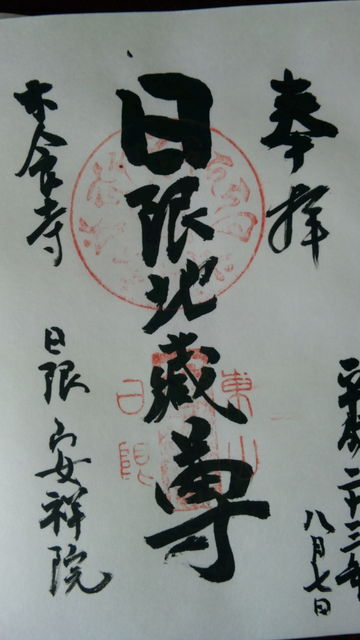 奉拝
平成二十三年
八月七日
日限地蔵尊
東山
日限
木食寺
日限 安祥院